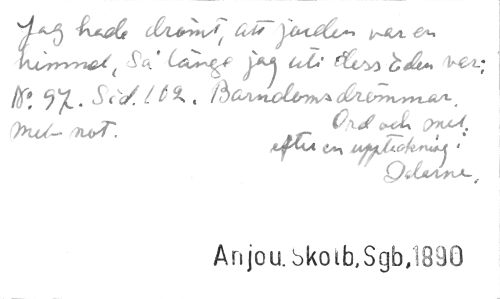 Jag hade drömt, att jorden var en
himmel, Så länge jag uti dess Eden var;
No. 97. Sid. 102. Barndomsdrömmar.
Mel- not. Ord och mel.
efter en uppteckning i
Dalarne.
Anjou. Skolb, Sgb, 1890